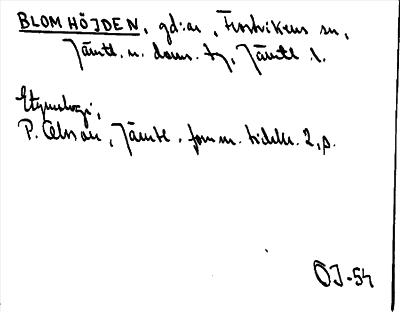 BLOMHÖJDEN, gd:ar, Frostvikens sn,
Jämtl. n. doms. tg, Jämtl l.
Etymologi,
P. Olsson, Jämtl. fornm. tidskr. 2, s.
ÖJ-54